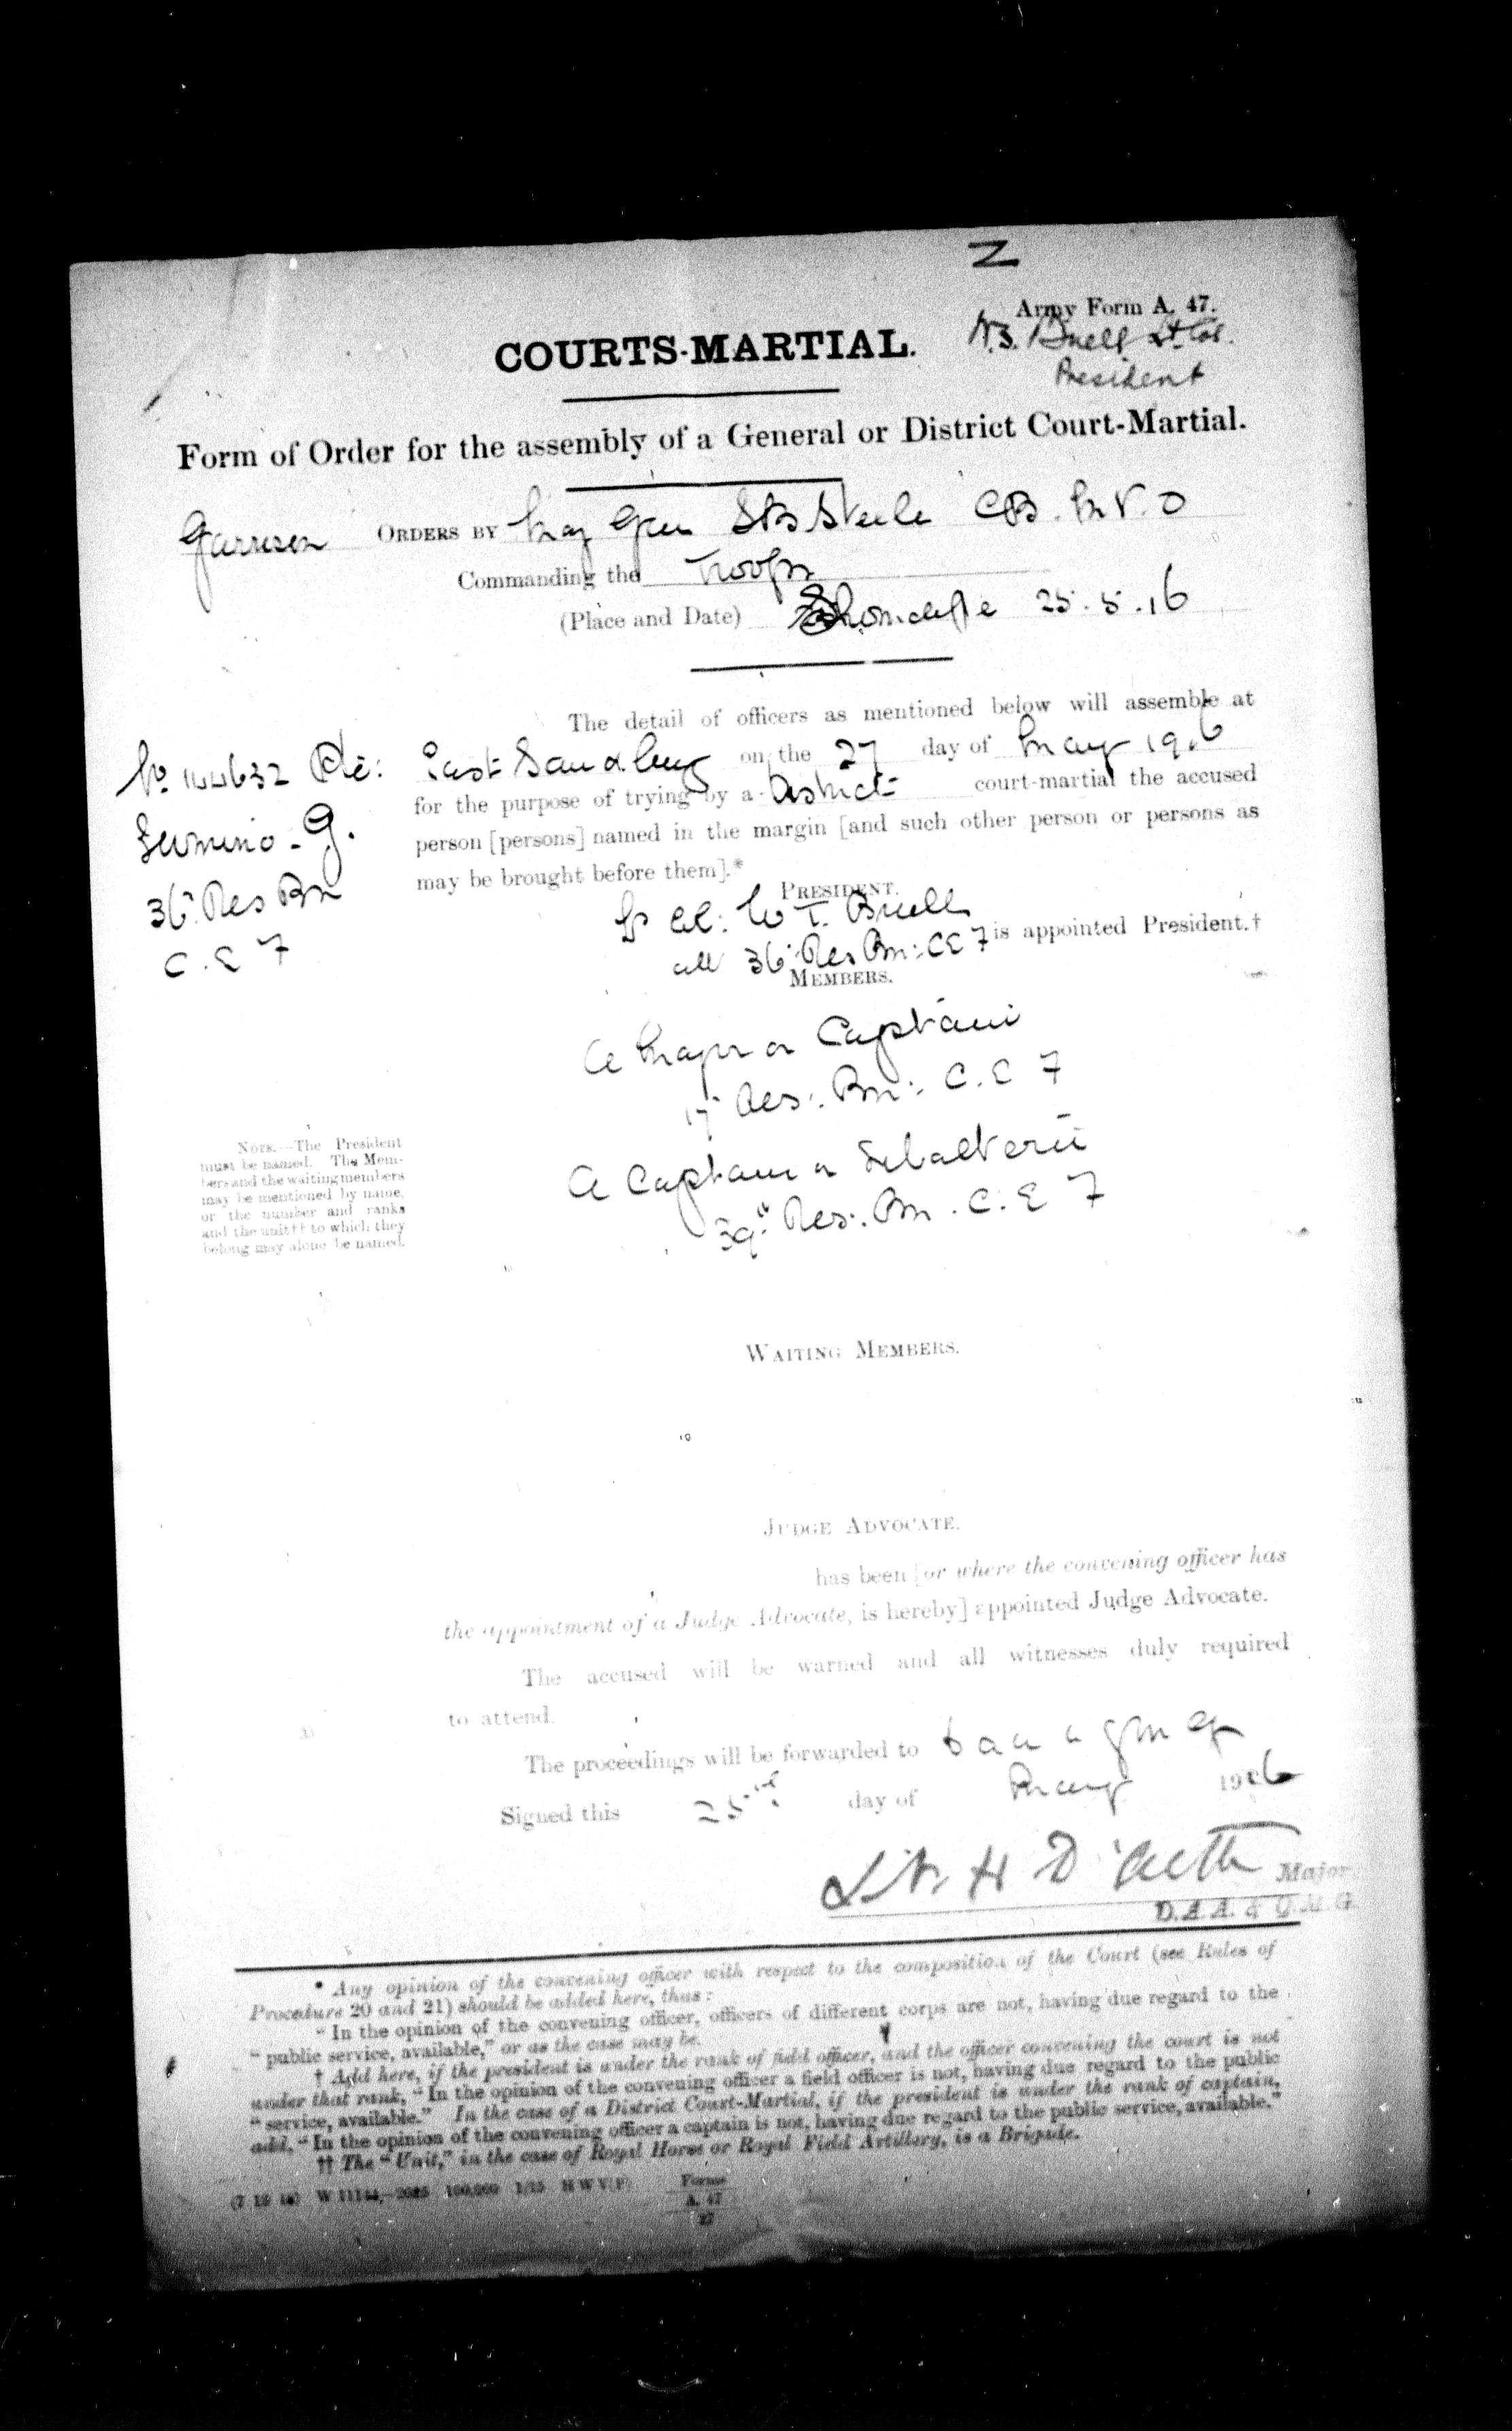 Z
Army Form A. 47.
COURTS-MARTIAL.
Buell Lt. Col.
President
Form of Order for the assembly of a General or District Court-Martial.
Garrison ORDERS BY Maj Gen S B Steele CB. M V. O
Commanding the Troops
(Place and Date) Shorncliffe 25.5.16
The detail of officers as mentioned below will assemble at
East Sandling on the 27 day of May 1916
for the purpose of trying by a District court-martial the accused
person [persons] named in the margin [and such other person or persons as
may be brought before them].*
No 144632 Pte:
G.
36 Res Bn
C. E F
PRESIDENT.
Lt Col: W T. Buell
36 Res Bn: CEF is appointed President.†
MEMBERS.
A Major or Captain
17 Res: Bn: C. E F
A Captain or Subaltern
39" Res: Bn. C. E F
NOTE.—The President
must be named. The Mem-
bers and the waiting members
may be mentioned by name,
or the number and ranks
and the unit†† to which they
belong may alone be named.
WAITING MEMBERS.
JUDGE ADVOCATE.
has been [or where the convening officer has
the appointment of a Judge Advocate, is hereby] appointed Judge Advocate.
The accused will be warned and all witnesses duly required
to attend.
The proceedings will be forwarded to
Signed this 25th day of May 1916
Major
D.A.A. & Q.M.G.
* Any opinion of the convening officer with respect to the composition of the Court (see Rules of
Procedure 20 and 21) should be added here, thus:
"In the opinion of the convening officer, officers of different corps are not, having due regard to the
"public service, available," or as the case may be.
† Add here, if the president is under the rank of field officer, and the officer convening the court is not
under that rank, "In the opinion of the convening officer a field officer is not, having due regard to the public
"service, available." In the case of a District Court-Martial, if the president is under the rank of captain,
add, "In the opinion of the convening officer a captain is not, having due regard to the public service, available."
†† The "Unit," in the case of Royal Horse or Royal Field Artillery, is a Brigade.
Forms
A. 47
27